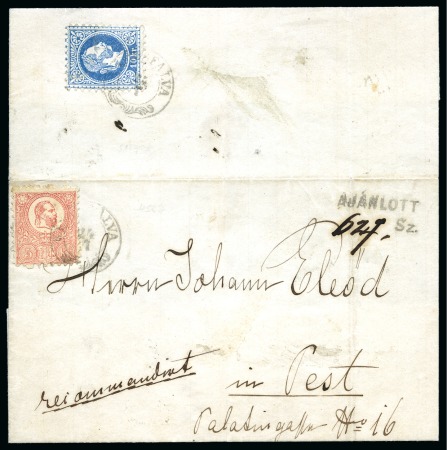 10 kr
AJÁNLOTT
Sz.
627.
Herrn Johann Eleőd
recommandirt
in Pest
Palatingasse No 16